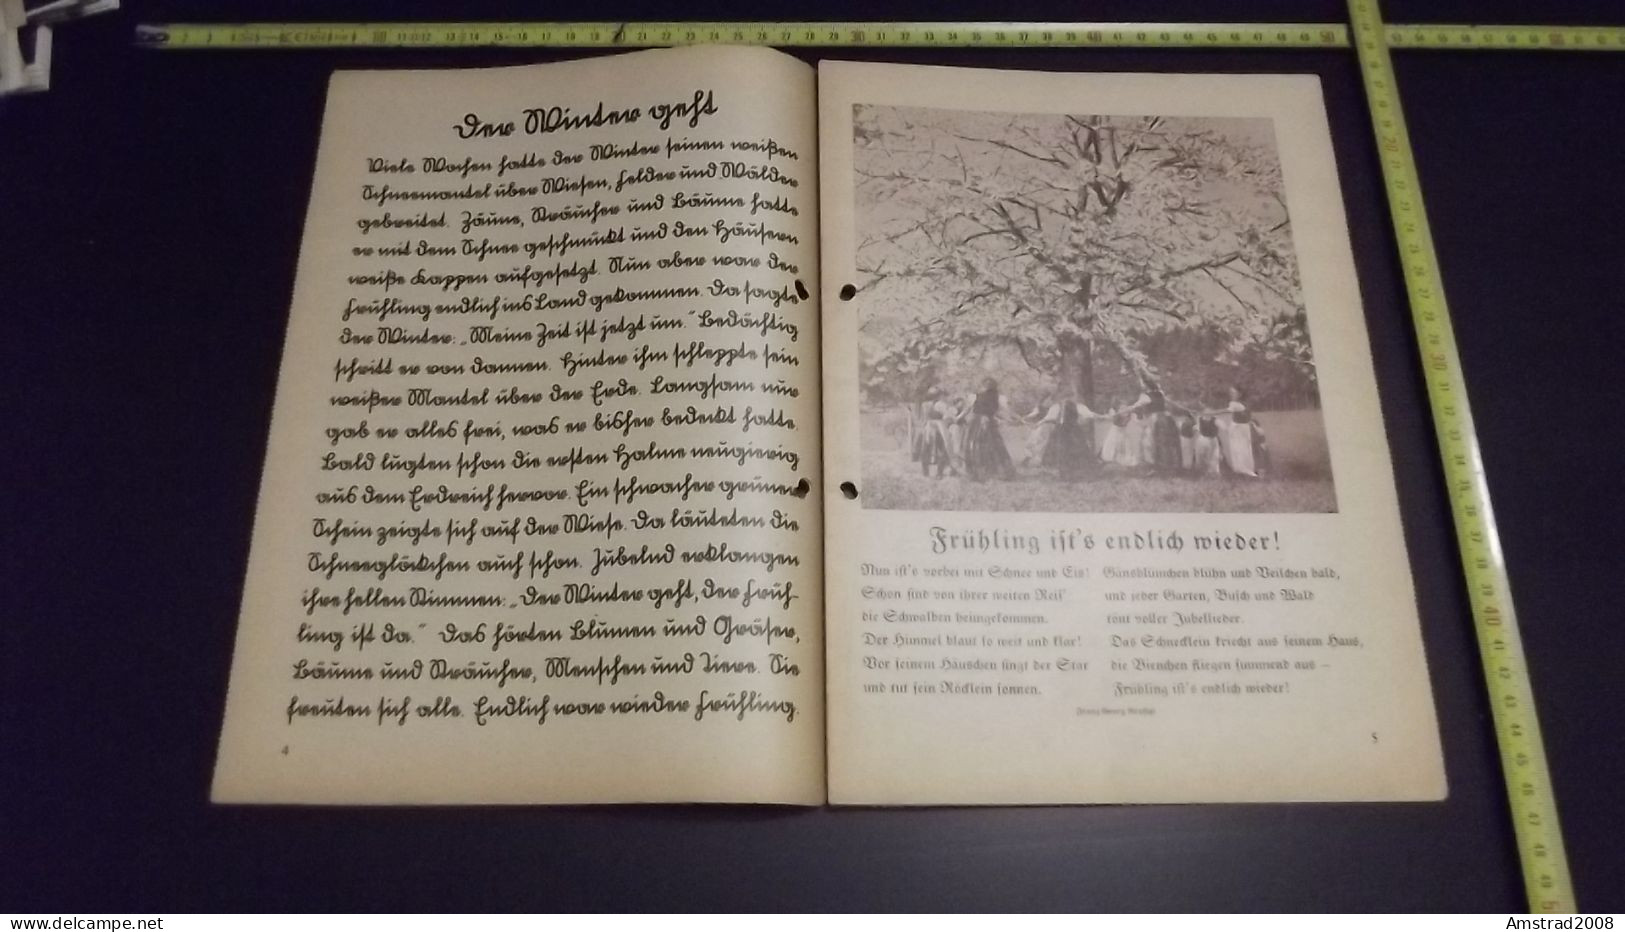 Der Winter geht
Viele Wochen hatte der Winter seinen weißen
Schneemantel über Wiesen, Felder und Wälder
gebreitet. Zäune, Sträucher und Bäume hatte
er mit dem Schnee geschmückt und den Häusern
weiße Kappen aufgesetzt. Nun aber war der
Frühling endlich ins Land gekommen. Da sagte
der Winter: „Meine Zeit ist jetzt um.“ Bedächtig
schritt er von dannen. Hinter ihm schleppte sein
weißer Mantel über der Erde. Langsam nur
gab er alles frei, was er bisher bedeckt hatte.
Bald lugten schon die ersten Halme neugierig
aus dem Erdreich hervor. Ein schwacher grüner
Schein zeigte sich auf der Wiese. Da läuteten die
Schneeglöckchen auch schon. Jubelnd erklangen
ihre hellen Stimmen: „Der Winter geht, der Früh-
ling ist da.“ Das hörten Blumen und Gräser,
Bäume und Sträucher, Menschen und Tiere. Sie
freuten sich alle. Endlich war wieder Frühling.
4
Frühling ist's endlich wieder!
Nun ist's vorbei mit Schnee und Eis!
Schon sind von ihrer weiten Reis'
die Schwalben heimgekommen.
Der Himmel blaut so weit und klar!
Vor seinem Häuschen singt der Star
und tut sein Röcklein sonnen.
Gänsblümchen blühn und Veilchen bald,
und jeder Garten, Busch und Wald
tönt voller Jubellieder.
Das Schnecklein kriecht aus seinem Haus,
die Bienchen fliegen summend aus —
Frühling ist's endlich wieder!
Georg
5
delcampe.net
Amstrad2008